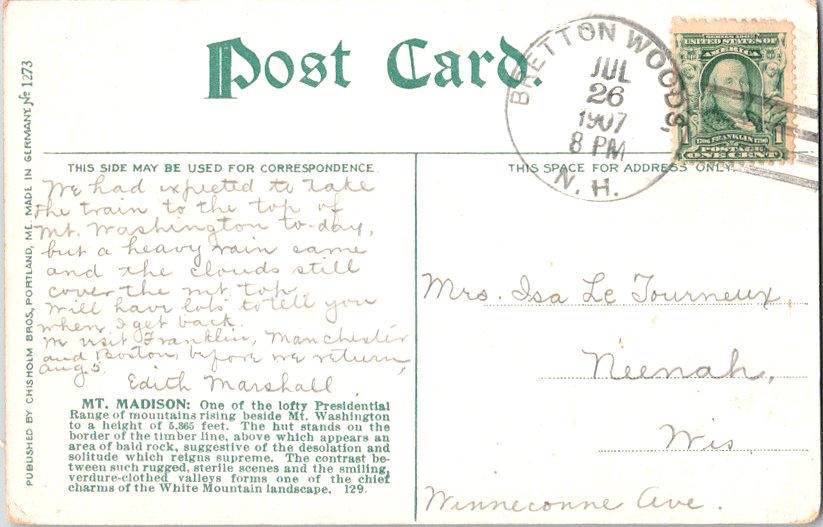 Post Card.
BRETTON WOODS,
JUL
26
1907
8 PM
N. H.
SERIES 1902
UNITED STATES OF
AMERICA
1706 FRANKLIN 1790
1 1
POSTAGE
ONE CENT
THIS SIDE MAY BE USED FOR CORRESPONDENCE.
We had expected to take
the train to the top of
Mt. Washington to-day,
but a heavy rain came
and the clouds still
cover the mt. top.
Will have lots to tell you
when I get back.
We visit Franklin, Manchester
and Boston, before we return,
Aug 5.
Edith Marshall
MT. MADISON: One of the lofty Presidential
Range of mountains rising beside Mt. Washington
to a height of 5,365 feet. The hut stands on the
border of the timber line, above which appears an
area of bald rock, suggestive of the desolation and
solitude which reigns supreme. The contrast be-
tween such rugged, sterile scenes and the smiling,
verdure-clothed valleys forms one of the chief
charms of the White Mountain landscape. 129.
THIS SPACE FOR ADDRESS ONLY.
Mrs. Isa Le Tourneux,
Neenah,
Wis
Winneconne Ave.
PUBLISHED BY CHISHOLM BROS, PORTLAND, ME. MADE IN GERMANY. No 1273